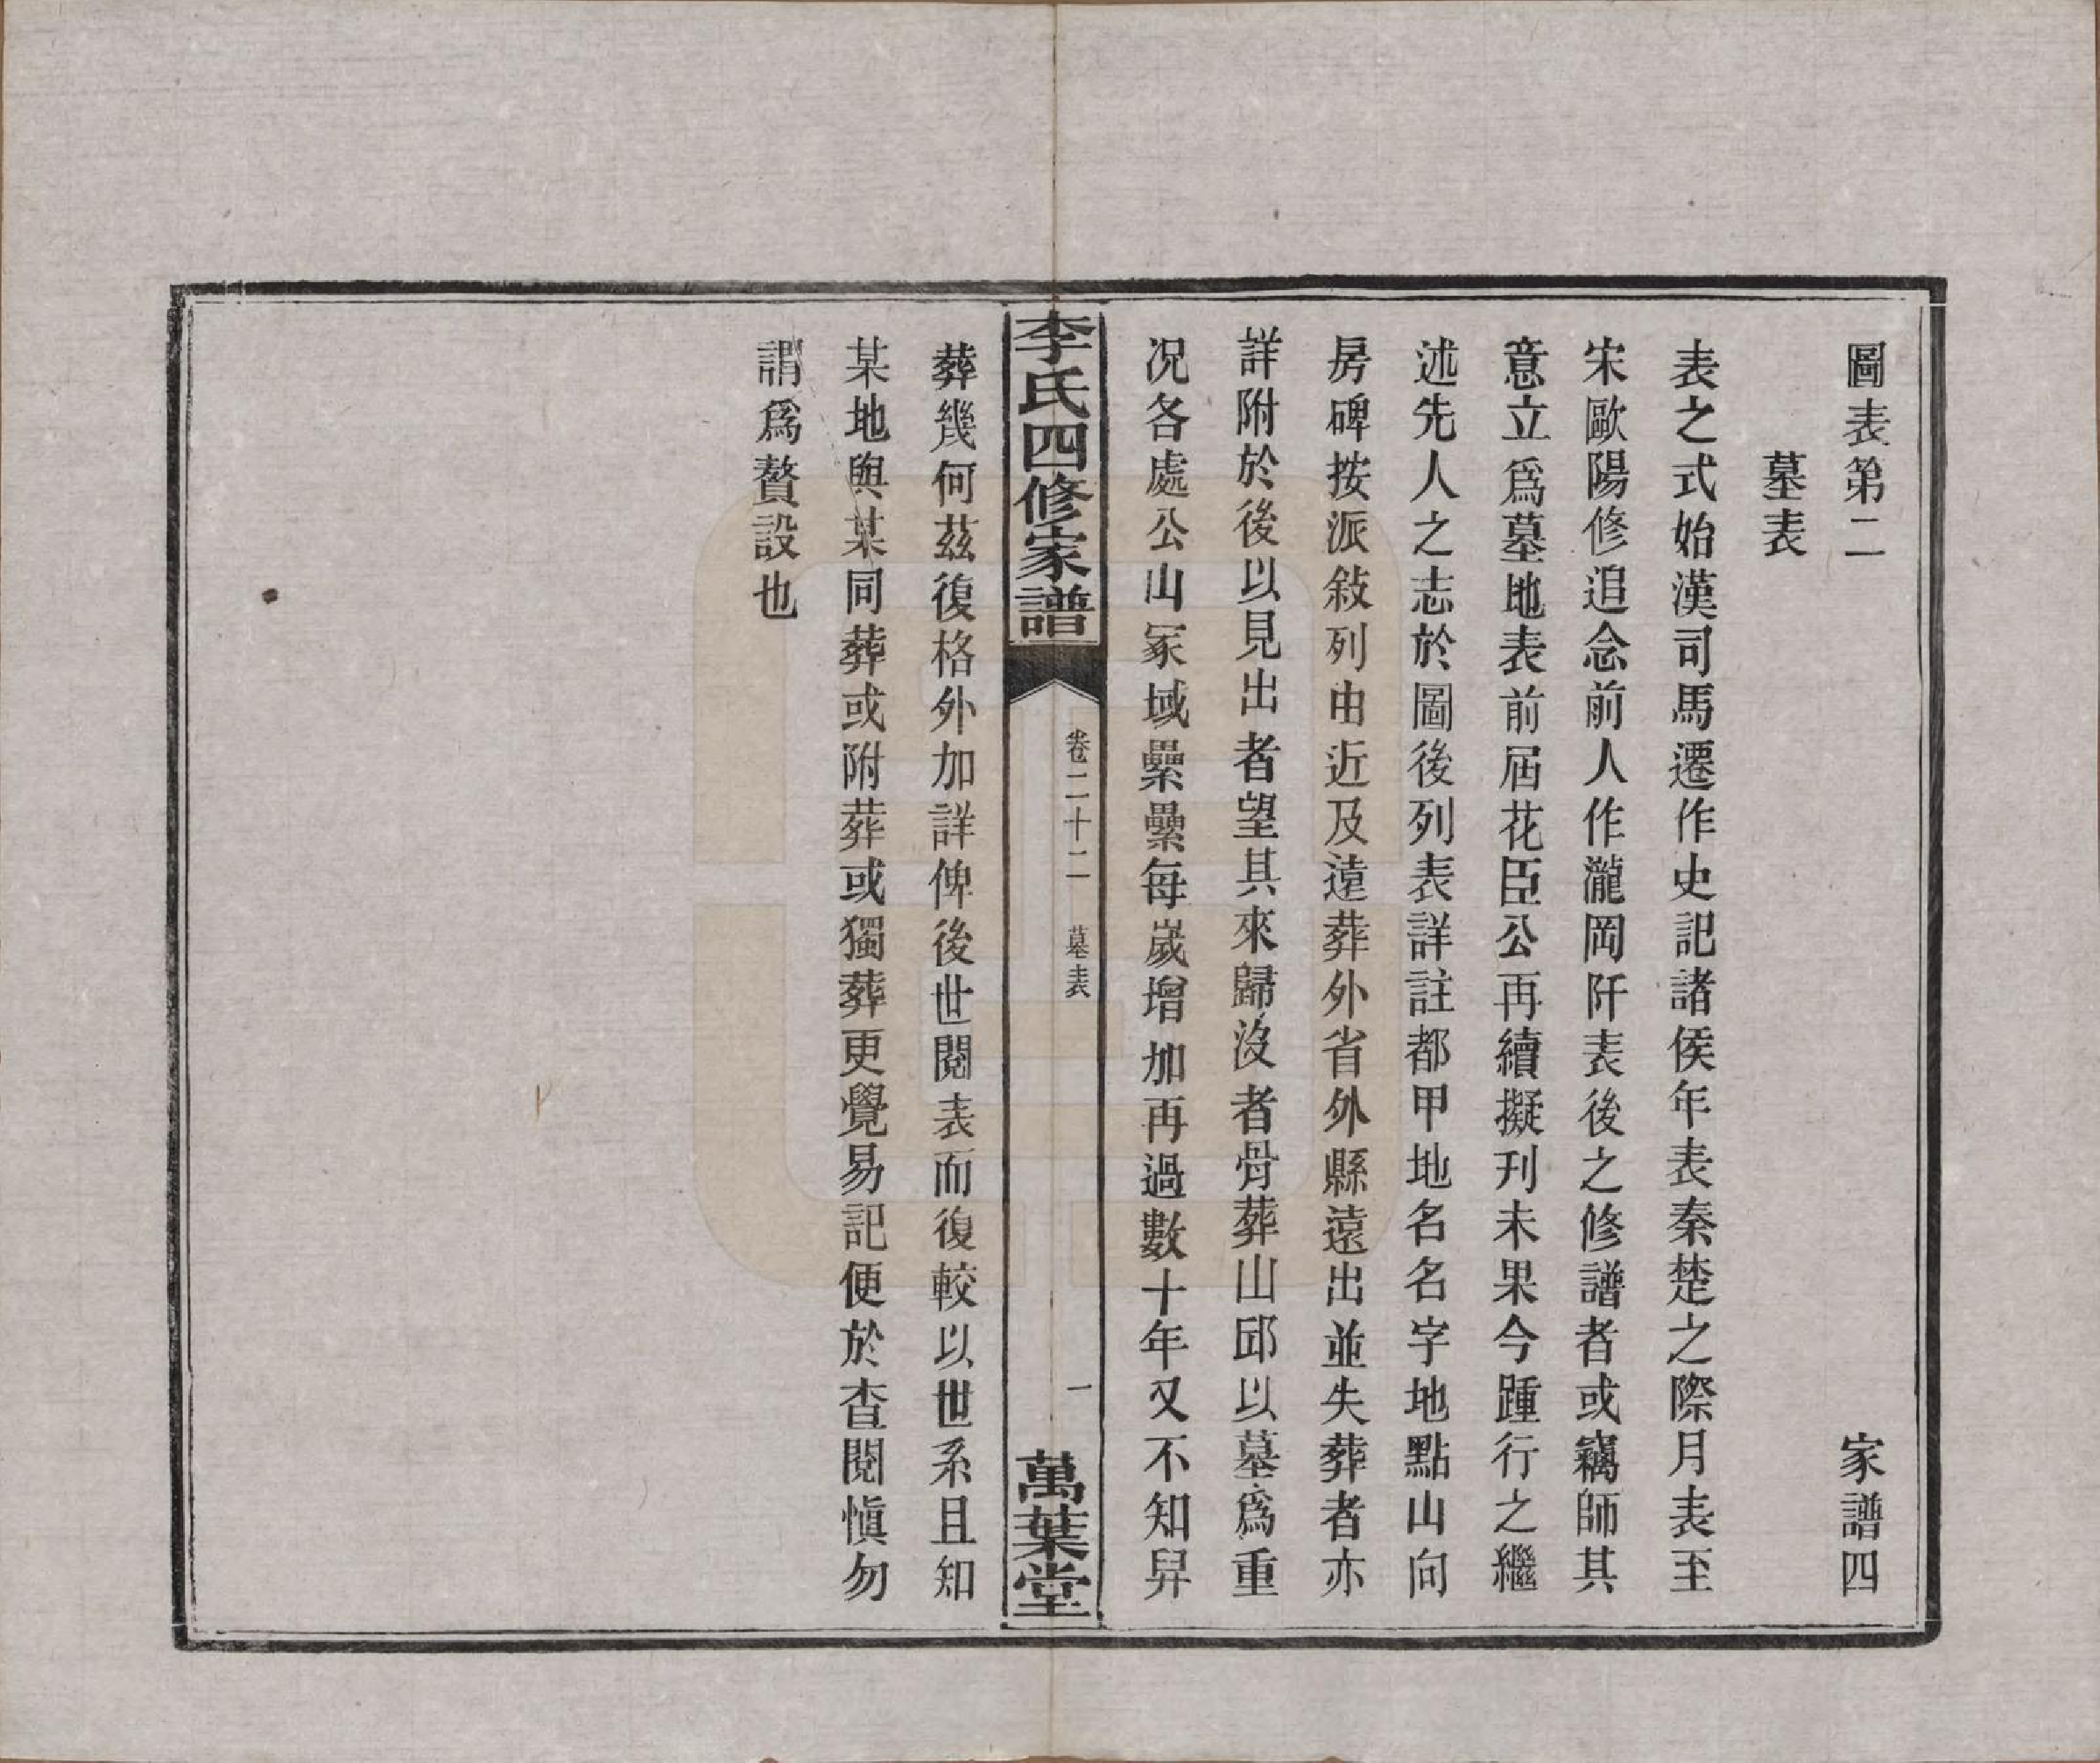 圖表第二　家譜四
墓表
表之式始漢司馬遷作史記諸侯年表秦楚之際月表至
宋歐陽修追念前人作瀧岡阡表後之修譜者或竊師其
意立爲墓地表前屆花臣公再續擬刋未果今踵行之繼
述先人之志於圖後列表詳註都甲地名名字地點山向
房碑按派敍列由近及遠葬外省外縣遠出並失葬者亦
詳附於後以見出者望其來歸沒者骨葬山邱以墓爲重
况各處公山冢域纍纍每歲增加再過數十年又不知舁
李氏四修家譜　卷二十二　墓表　一　萬葉堂
葬幾何茲復格外加詳俾後世閱表而復較以世系且知
某地與某同葬或附葬或獨葬更覺易記便於查閱愼勿
謂爲贅設也